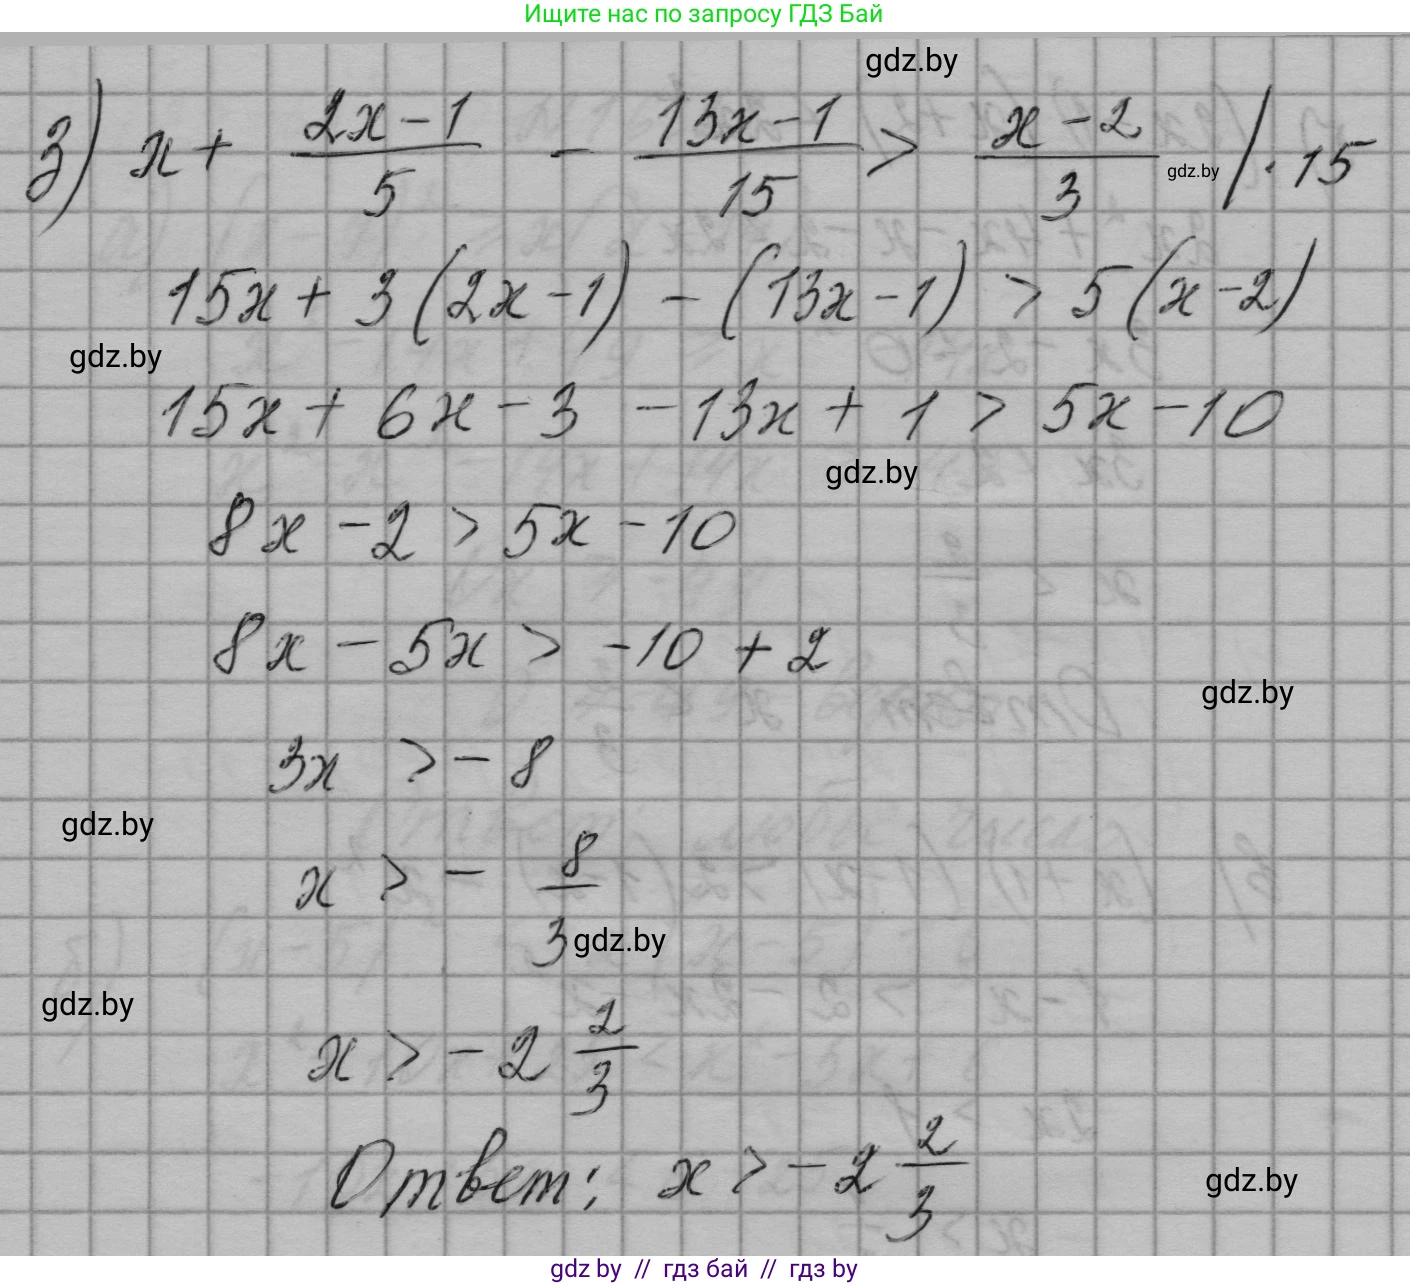 Ищите нас по запросу ГДЗ Бай
gdz.by
3) x + (2x-1)/5 - (13x-1)/15 > (x-2)/3 gdz.by /·15
15x + 3(2x-1) - (13x-1) > 5(x-2)
gdz.by
15x + 6x - 3 - 13x + 1 > 5x - 10
gdz.by
8x - 2 > 5x - 10
8x - 5x > -10 + 2
gdz.by
3x > - 8
gdz.by
x > - 8/3
gdz.by
gdz.by
x > - 2 2/3
Ответ: x > - 2 2/3
gdz.by
gdz by // гдз бай // гдз by